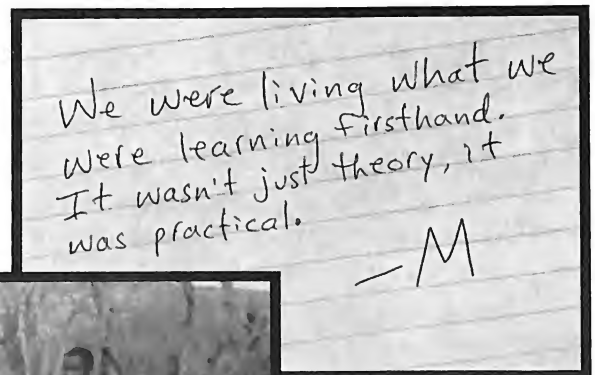 We were living what we
were learning firsthand.
It wasn't just theory, it
was practical.
—M